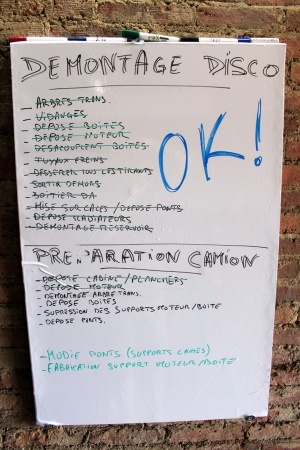 DEMONTAGE DISCO
- ARBRES TRANS.
- VIDANGES
- DEPOSE BOITES
- DEPOSE MOTEUR
- DESACOUPLENT BOITES
- TUYAUX FREINS
- DESSERER TOUS LES TIRANTS
- SORTIR DEMONS
- BOITIER DA
- MISE SUR CALES / DEPOSE PONTS
- DEPOSE RADIATEURS
- DEMONTAGE RESERVOIR
OK!
PREPARATION CAMION
- DEPOSE CABINE / PLANCHERS
- DEPOSE MOTEUR
- DEMONTAGE ARBRE TRANS.
- DEPOSE BOITES
- SUPRESSION DES SUPPORTS MOTEUR / BOITE
- DEPOSE PONTS.
- MODIF PONTS (SUPPORTS LAMES)
- FABRICATION SUPPORT MOTEUR/BOITE